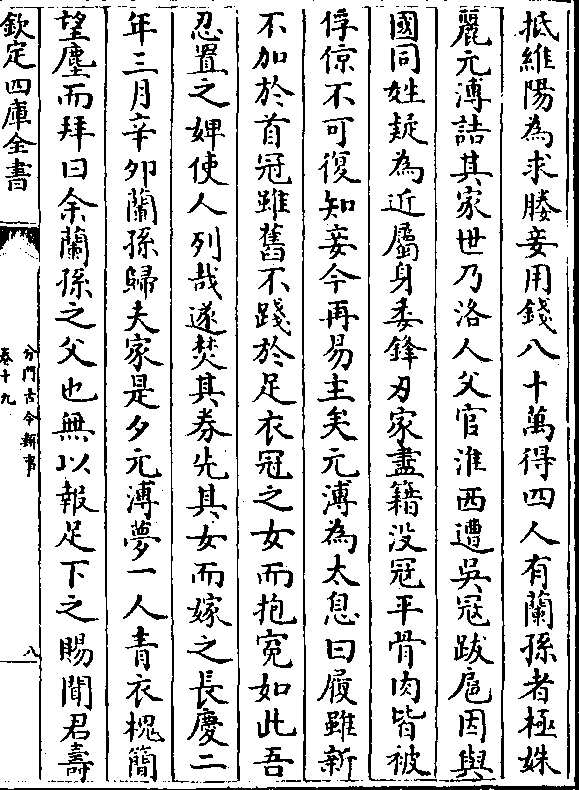 抵維陽為求媵妾用錢八十萬得四人有蘭孫者極姝
麗元溥詰其家世乃洛人父官淮西遭吳冦跋扈因與
國同姓疑為近屬身委鋒刃家盡籍没冦平骨肉皆被
俘倞不可復知妾今再易主矣元溥為太息曰履雖新
不加於首冠雖舊不踐於足衣冠之女而抱寃如此吾
忍置之婢使人列哉遂焚其券先其女而嫁之長慶二
年三月辛卯蘭孫歸夫家是夕元溥夢一人青衣槐簡
望塵而拜曰余蘭孫之父也無以報足下之賜聞君壽
欽定四庫全書
分門古今類事
卷十九
八